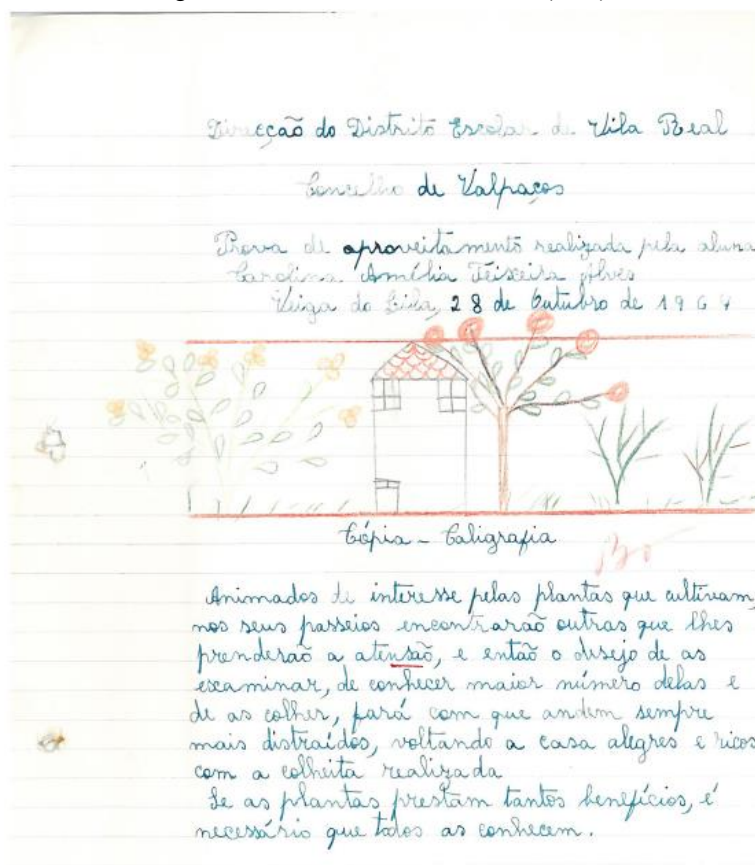 Direcção do Distrito Escolar de Vila Real
Concelho de Valpaços
Prova de aproveitamento realizada pela aluna
Carolina Amélia Teixeira Alves
Veiga do Lila, 28 de Outubro de 1964
Cópia - Caligrafia
Animados de interesse pelas plantas que cultivam,
nos seus passeios encontrarão outras que lhes
prenderão a atensão, e então o desejo de as
examinar, de conhecer maior número delas e
de as colher, fará com que andem sempre
mais distraídos, voltando a casa alegres e ricos
com a colheita realizada
Se as plantas prestam tantos benefícios, é
necessário que todos as conhecem.